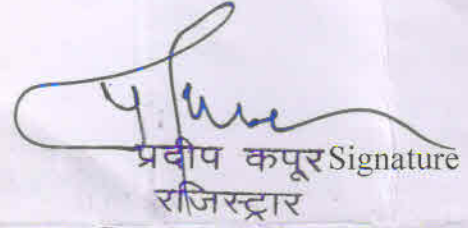 प्रदीप कपूर Signature
रजिस्ट्रार